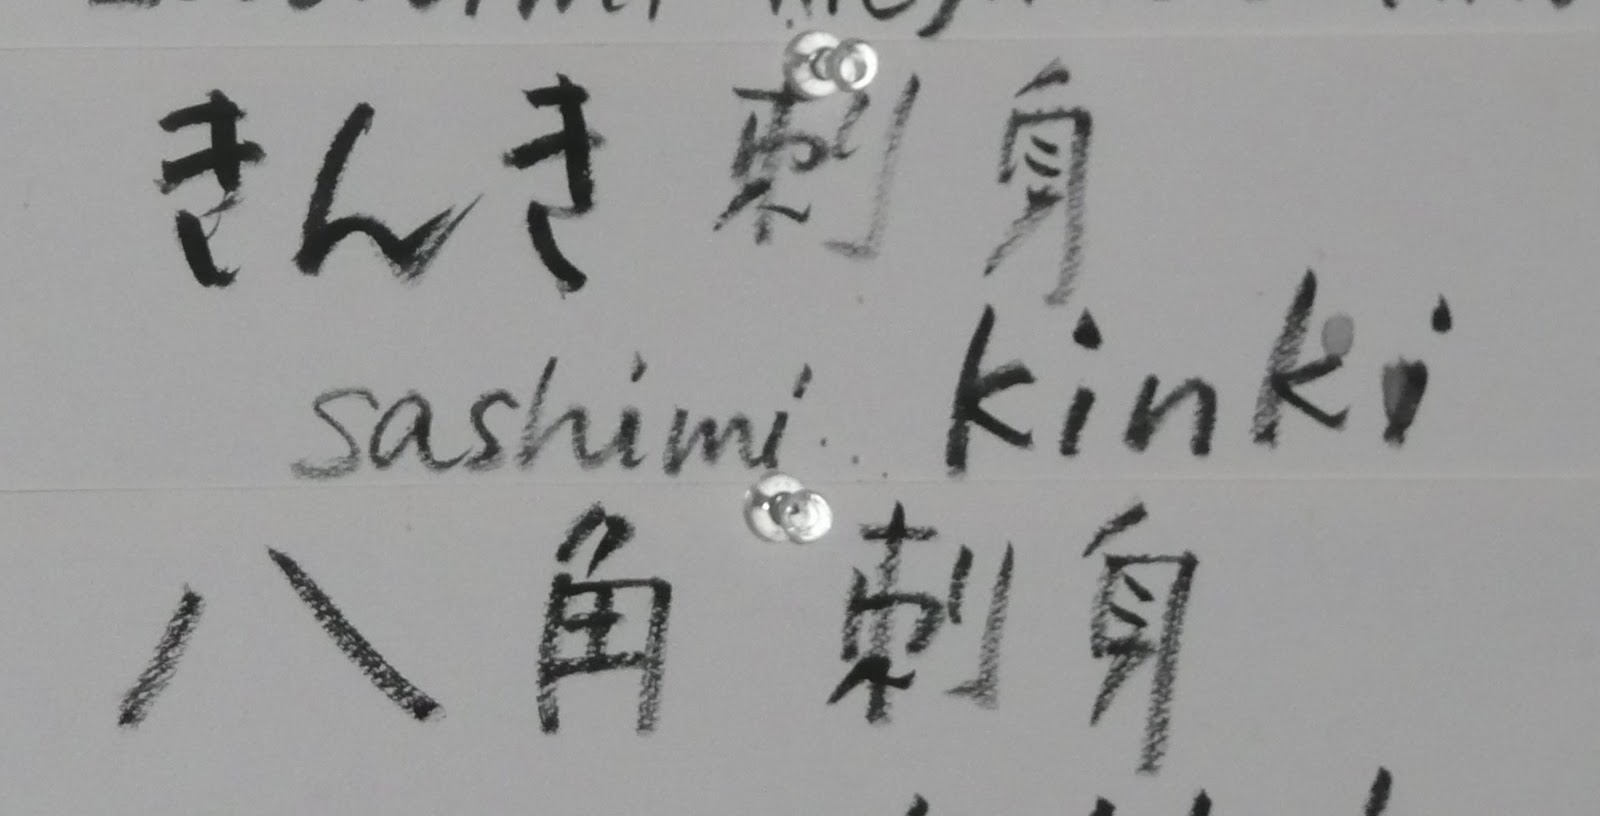 きんき 刺身
sashimi kinki
八角 刺身